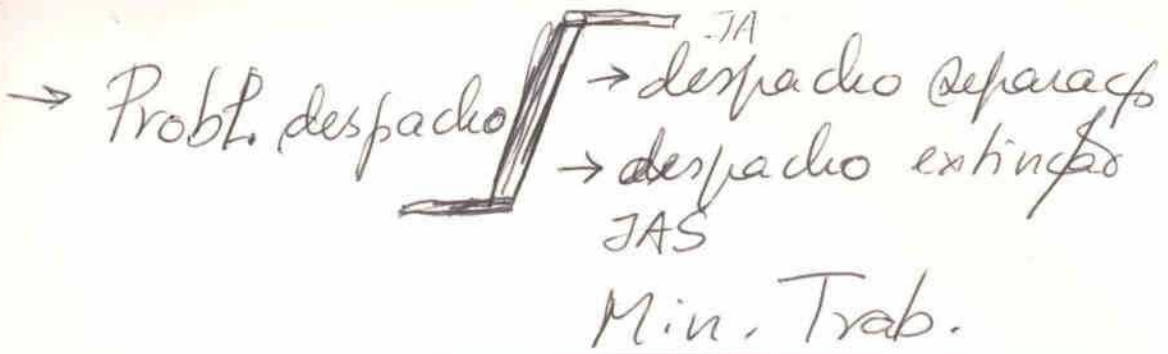 JA
→ Probl. despacho → despacho separaçº
→ despacho extinção
JAS
Min. Trab.